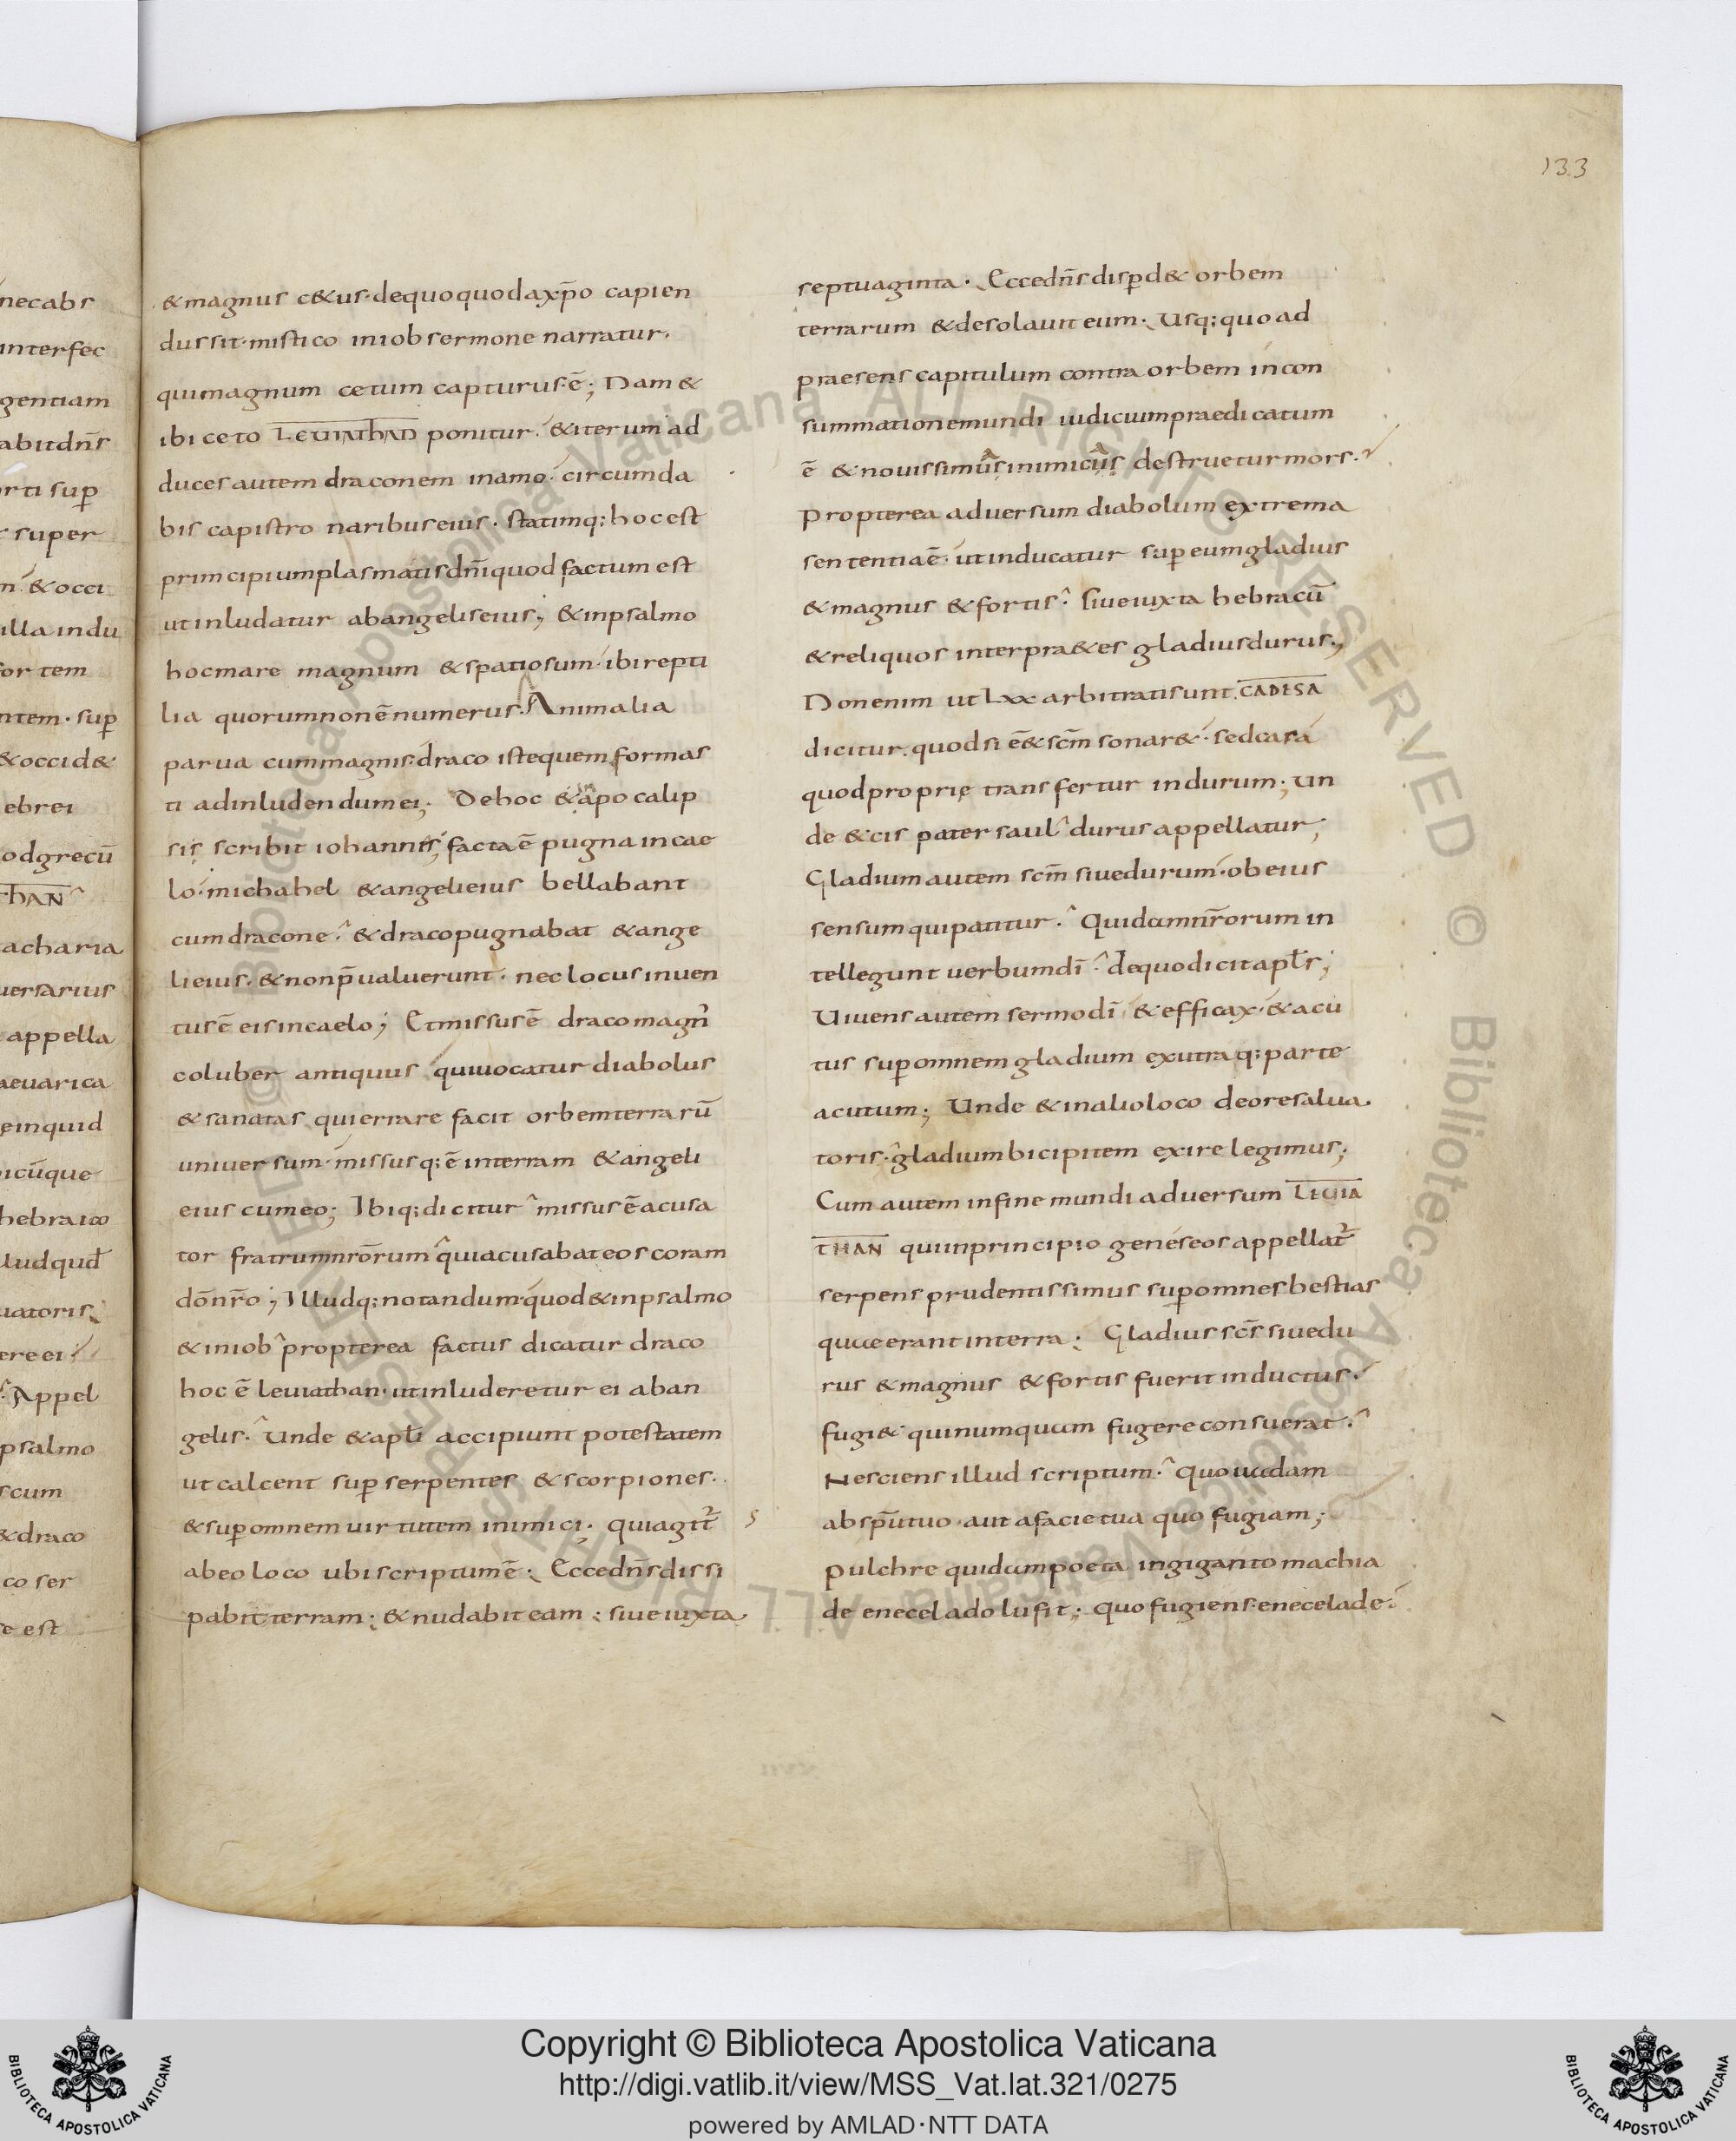 133
necabs
interfec
gentiam
abitdn̄s
rti sup̱
super
& occi
illa indu
for tem
ntem · sup̱
& occid&
ebrei
odgrecū
than
acharia
uersarius
appella
aeuarica
einquid
icūque
hebraico
lludqud̄
uatoris
ere ei
Appel
psalmo
scum
& draco
co ser
e est
& magnus c&us · dequoquodaxp̄o capien
dus sit · mistico iniob sermone narratur ·
quimagnum cetum capturus ē ; Nam &
ibi ceto LEVIATHAN ponitur · & iterum ad
duces autem draconem inamo · circumda
bis capistro naribus eius · statimq; hoc est
principiumplasmatis dn̄i quod factum est
ut inludatur abangelis eius ; & inpsalmo
hocmare magnum & spatiosum · ibi repti
lia quorumnon ē numerus · Animalia
parua cummagnis · draco istequem formas
ti adinludendum ei ; Dehoc & inapocalip
sis scribit iohannis ; facta ē pugna incae
lo · michahel & angeli eius bellabant
cum dracone · & draco pugnabat & ange
li eius · & nonp̄ualuerunt · nec locus inuen
tus ē eis incaelo ; Etmissus ē draco magn᾿
coluber antiquus quiuocatur diabolus
& sanatas qui errare facit orbemterrarū
uniuersum · missusq; ē interram & angeli
eius cum eo ; Ibiq; dicitur missus ē acusa
tor fratrumnr̄orum quiacusabat eos coram
dōnr̄o ; Illudq; notandum · quod & inpsalmo
& iniob propterea factus dicatur draco
hoc ē leuiathan · ut inluderetur ei aban
gelis · Unde & apl̄i accipiunt potestatem
ut calcent sup̱ serpentes & scorpiones ·
& sup̱omnem uirtutem inimici · quiagit᾿
abeo loco ubi scriptum ē · Eccedn̄s dissi
pabit terram ; & nudabit eam ; siue iuxta
septuaginta · Eccedn̄s disp̱d& orbem
terrarum & desolauit eum · Usq; quo ad
praesens capitulum contra orbem in con
summatione mundi iudicium praedicatum
ē & nouissimus inimicus destruetur mors ·
Propterea aduersum diabolum extrema
sententia ē · ut inducatur sup̱ eum gladius
& magnus & fortis · siue iuxta hebraeū
& reliquos interpr&es gladius durus ;
Non enim ut Lxx arbitrati sunt CADESA
dicitur · quod si ē & sc̄m sonar& · sed cará
quod proprie transfertur indurum ; un
de & cis pater saul durus appellatur ;
Gladium autem sc̄m siue durum · ob eius
sensum qui patitur · Quidamnr̄orum in
tellegunt uerbum dī · dequo dicit apl̄s ;
Uiuens autem sermo dī & efficax · & acu
tus sup̱omnem gladium exutraq; parte
acutum ; Unde & inalioloco deore salua
toris · gladium bicipitem exire legimus ;
Cum autem in fine mundi aduersum LEUIA
THAN qui inprincipio genéseos appellat᾿
serpens prudentissimus sup̱omnes bestias
quae erant interra ; Gladius sc̄s siue du
rus & magnus & fortis fuerit inductus ·
fugi& quinumquam fugere consuerat ·
Nesciens illud scriptum · Quo uadam
absp̄utuo · aut afacie tua quo fugiam ;
pulchre quidam poeta in gigantomachia
de enecelado lusit ; quo fugiens enecelade ·
Copyright © Biblioteca Apostolica Vaticana
http://digi.vatlib.it/view/MSS_Vat.lat.321/0275
powered by AMLAD·NTT DATA
BIBLIOTECA APOSTOLICA VATICANA
BIBLIOTECA APOSTOLICA VATICANA